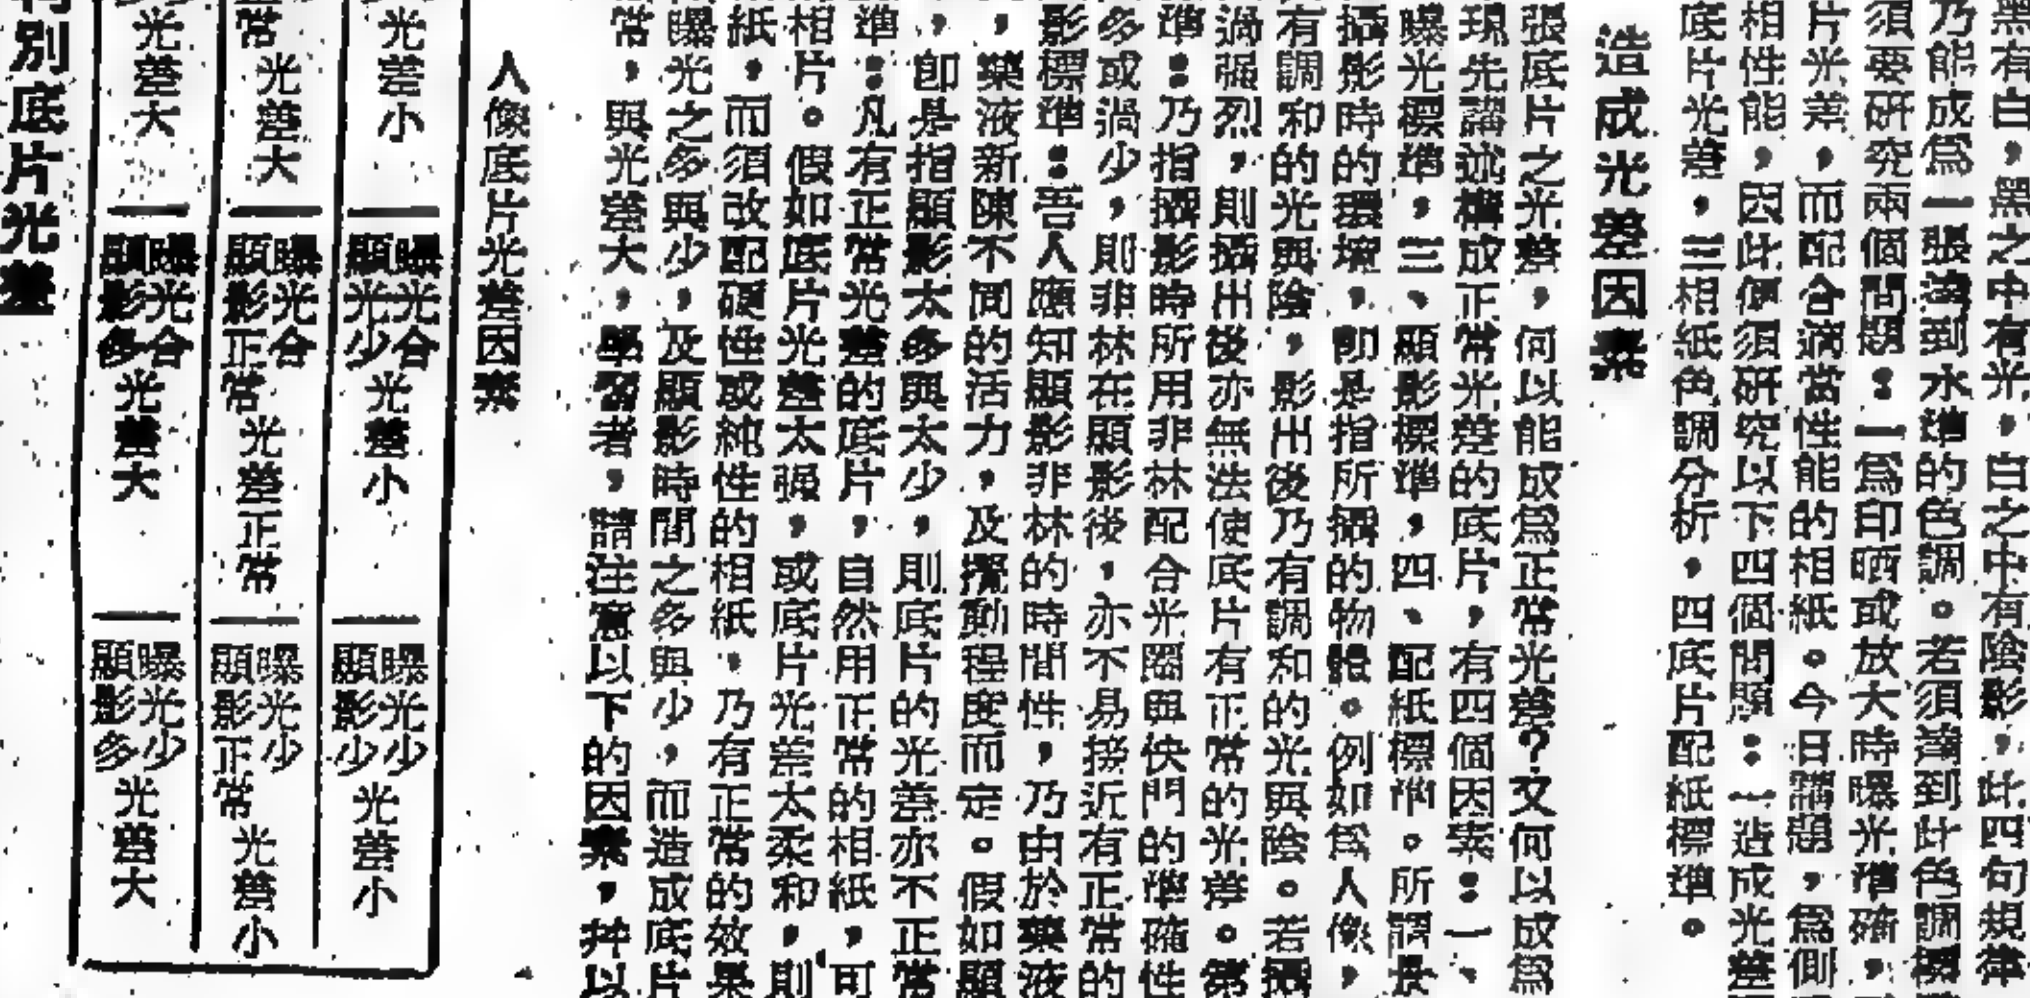 黑有白，黑之中有光，白之中有陰影，此四句規律
乃能成爲一張達到水準的色調。若須達到此色調標
須要研究兩個問題：一爲印晒或放大時曝光準確，
片光差，而配合適當性能的相紙。今日講題，爲側
相性能，因此便須研究以下四個問題：一造成光差
底片光差，三相紙色調分析，四底片配紙標準。
造成光差因素
張底片之光差，何以能成爲正常光差？又何以成爲
現先講述構成正常光差的底片，有四個因素：一、
曝光標準，三、顯影標準，四、配紙標準。所謂
攝影時的環境，卽是指所攝的物體。例如爲人像，
有調和的光與陰，影出後乃有調和的光與陰。若攝
過强烈，則攝出後亦無法使底片有正常的光差。第
準：乃指攝影時所用菲林配合光圈與快門的準確性
多或過少，則菲林在顯影後，亦不易接近有正常的
影標準：吾人應知顯影菲林的時間性，乃由於藥液
，藥液新陳不同的活力，及攪動程度而定。假如顯
，卽是指顯影太多與太少，則底片的光差亦不正常
準：凡有正常光差的底片，自然用正常的相紙，可
相片。假如底片光差太强，或底片光差太柔和，則
紙，而須改配硬性或純性的相紙，乃有正常的效果
曝光之多與少，及顯影時間之多與少，而造成底片
常，與光差大，學習者，請注意以下的因素，幷以
人像底片光差因素
光差小
曝光合
顯光少
光差小
曝光少
顯影少
光差小
常
光差大
曝光合
顯影正常
光差正常
曝光少
顯影正常
光差小
光差大
曝光合
顯影多
光差大
曝光少
顯影多
光差大
別底片光差